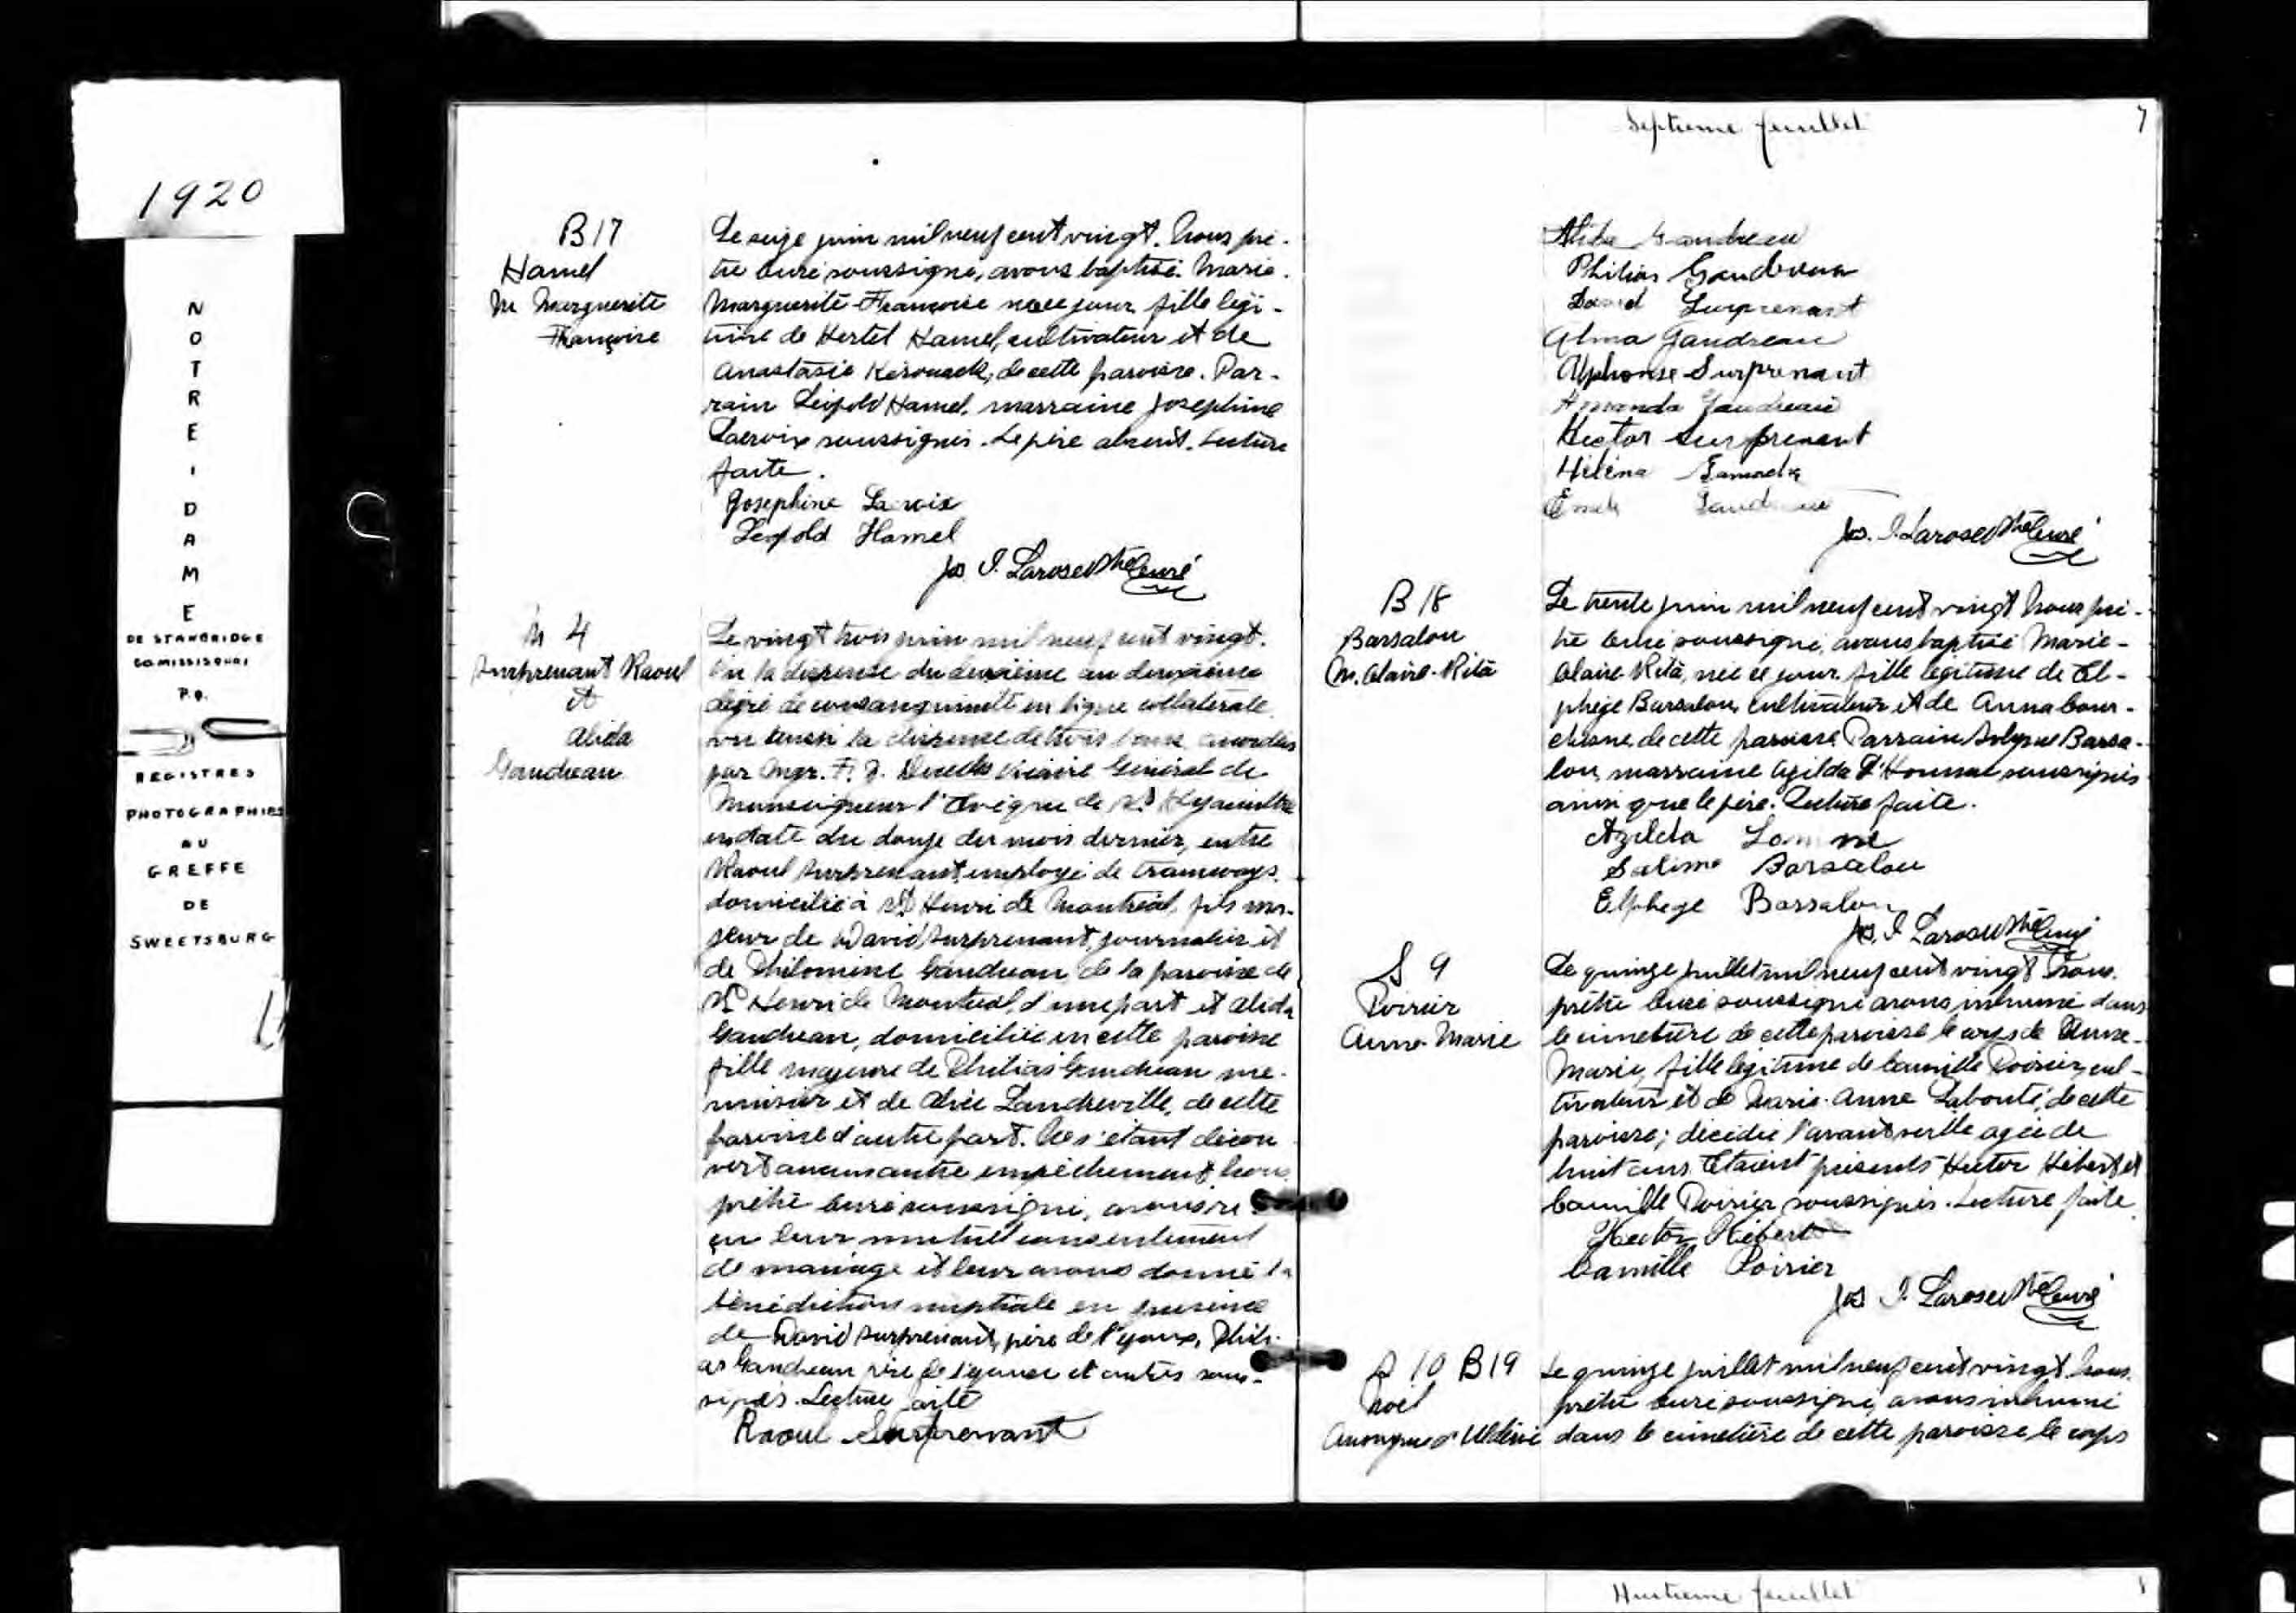 1920
NOTRE-DAME
DE STANBRIDGE
CO MISSISQUOI
P.Q.
REGISTRES
PHOTOGRAPHIES
AU
GREFFE
DE
SWEETSBURG
B 17
Hamel
M Marguerite
Françoise
Le seize juin mil neuf cent vingt. Nous prê-
tre curé soussigné, avons baptisé Marie-
Marguerite-Françoise née ce jour, fille légi-
time de Hertel Hamel, cultivateur et de
Anastasie Kérouack, de cette paroisse. Par-
rain Léopold Hamel, marraine Joséphine
Lacroix soussignés. Le père absent. Lecture
faite.
Josephine Lacroix
Leopold Hamel
Jos. I. Larose Ptre Curé
M 4
Surprenant Raoul
et
Alida
Gaudreau
Le vingt trois juin mil neuf cent vingt.
Vu la dispense du deuxième au deuxième
degré de consanguinité en ligne collatérale
vu aussi la dispense de trois bans accordés
par Mgr. F. Z. Decelles Vicaire Général de
Monseigneur l'Evêque de St Hyacinthe
en date du douze du mois dernier, entre
Raoul Surprenant, employé de tramways,
domicilié à St Henri de Montréal, fils ma-
jeur de David Surprenant, journalier et
de Philomène Gaudreau de la paroisse de
St Henri de Montréal, d'une part et Alida
Gaudreau, domiciliée en cette paroisse
fille majeure de Philias Gaudreau me-
nuisier et de Alice Landreville, de cette
paroisse d'autre part. Ne s'étant décou
vert aucun autre empêchement, Nous
prêtre curé soussigné, avons re-
çu leur mutuel consentement
de mariage et leur avons donné la
bénédiction nuptiale en présence
de David Surprenant, père de l'époux, Phili-
as Gaudreau père de l'épouse et autres sous-
signés. Lecture faite
Raoul Surprenant
Septième feuillet
7
Alida Gaudreau
Philias Gaudreau
David Surprenant
Alma Gaudreau
Alphonse Surprenant
Amanda Gaudreau
Hector Surprenant
Hélèna
Jos. I. Larose Ptre Curé
B 18
Barsalou
M. Claire-Rita
Le trente juin mil neuf cent vingt Nous prê-
tre curé soussigné, avons baptisé Marie-
Claire-Rita, née ce jour, fille légitime de El-
phège Barsalou, cultivateur et de Anna Cour-
chesne de cette paroisse. Parrain Barsa-
lou, marraine Azilda soussignés
ainsi que le père. Lecture faite.
Azilda
Salime Barsalou
Elphege Barsalou
Jos. I. Larose Ptre Curé
S 9
Poirier
Anne-Marie
Le quinze juillet mil neuf cent vingt Nous
prêtre curé soussigné avons inhumé dans
le cimetière de cette paroisse le corps de Anne-
Marie, fille légitime de Camille Poirier, cul-
tivateur et de Marie-Anne Labonté, de cette
paroisse; décédée l'avant veille agée de
huit ans. Etaient présents Hector Hébert et
Camille Poirier soussignés. Lecture faite
Hector Hébert
Camille Poirier
Jos I. Larose Ptre Curé
S 10 B 19
Noel
Anonyme d'Uldéric
Le quinze juillet mil neuf cent vingt Nous
prêtre curé soussigné, avons inhumé
dans le cimetière de cette paroisse, le corps
Huitième feuillet